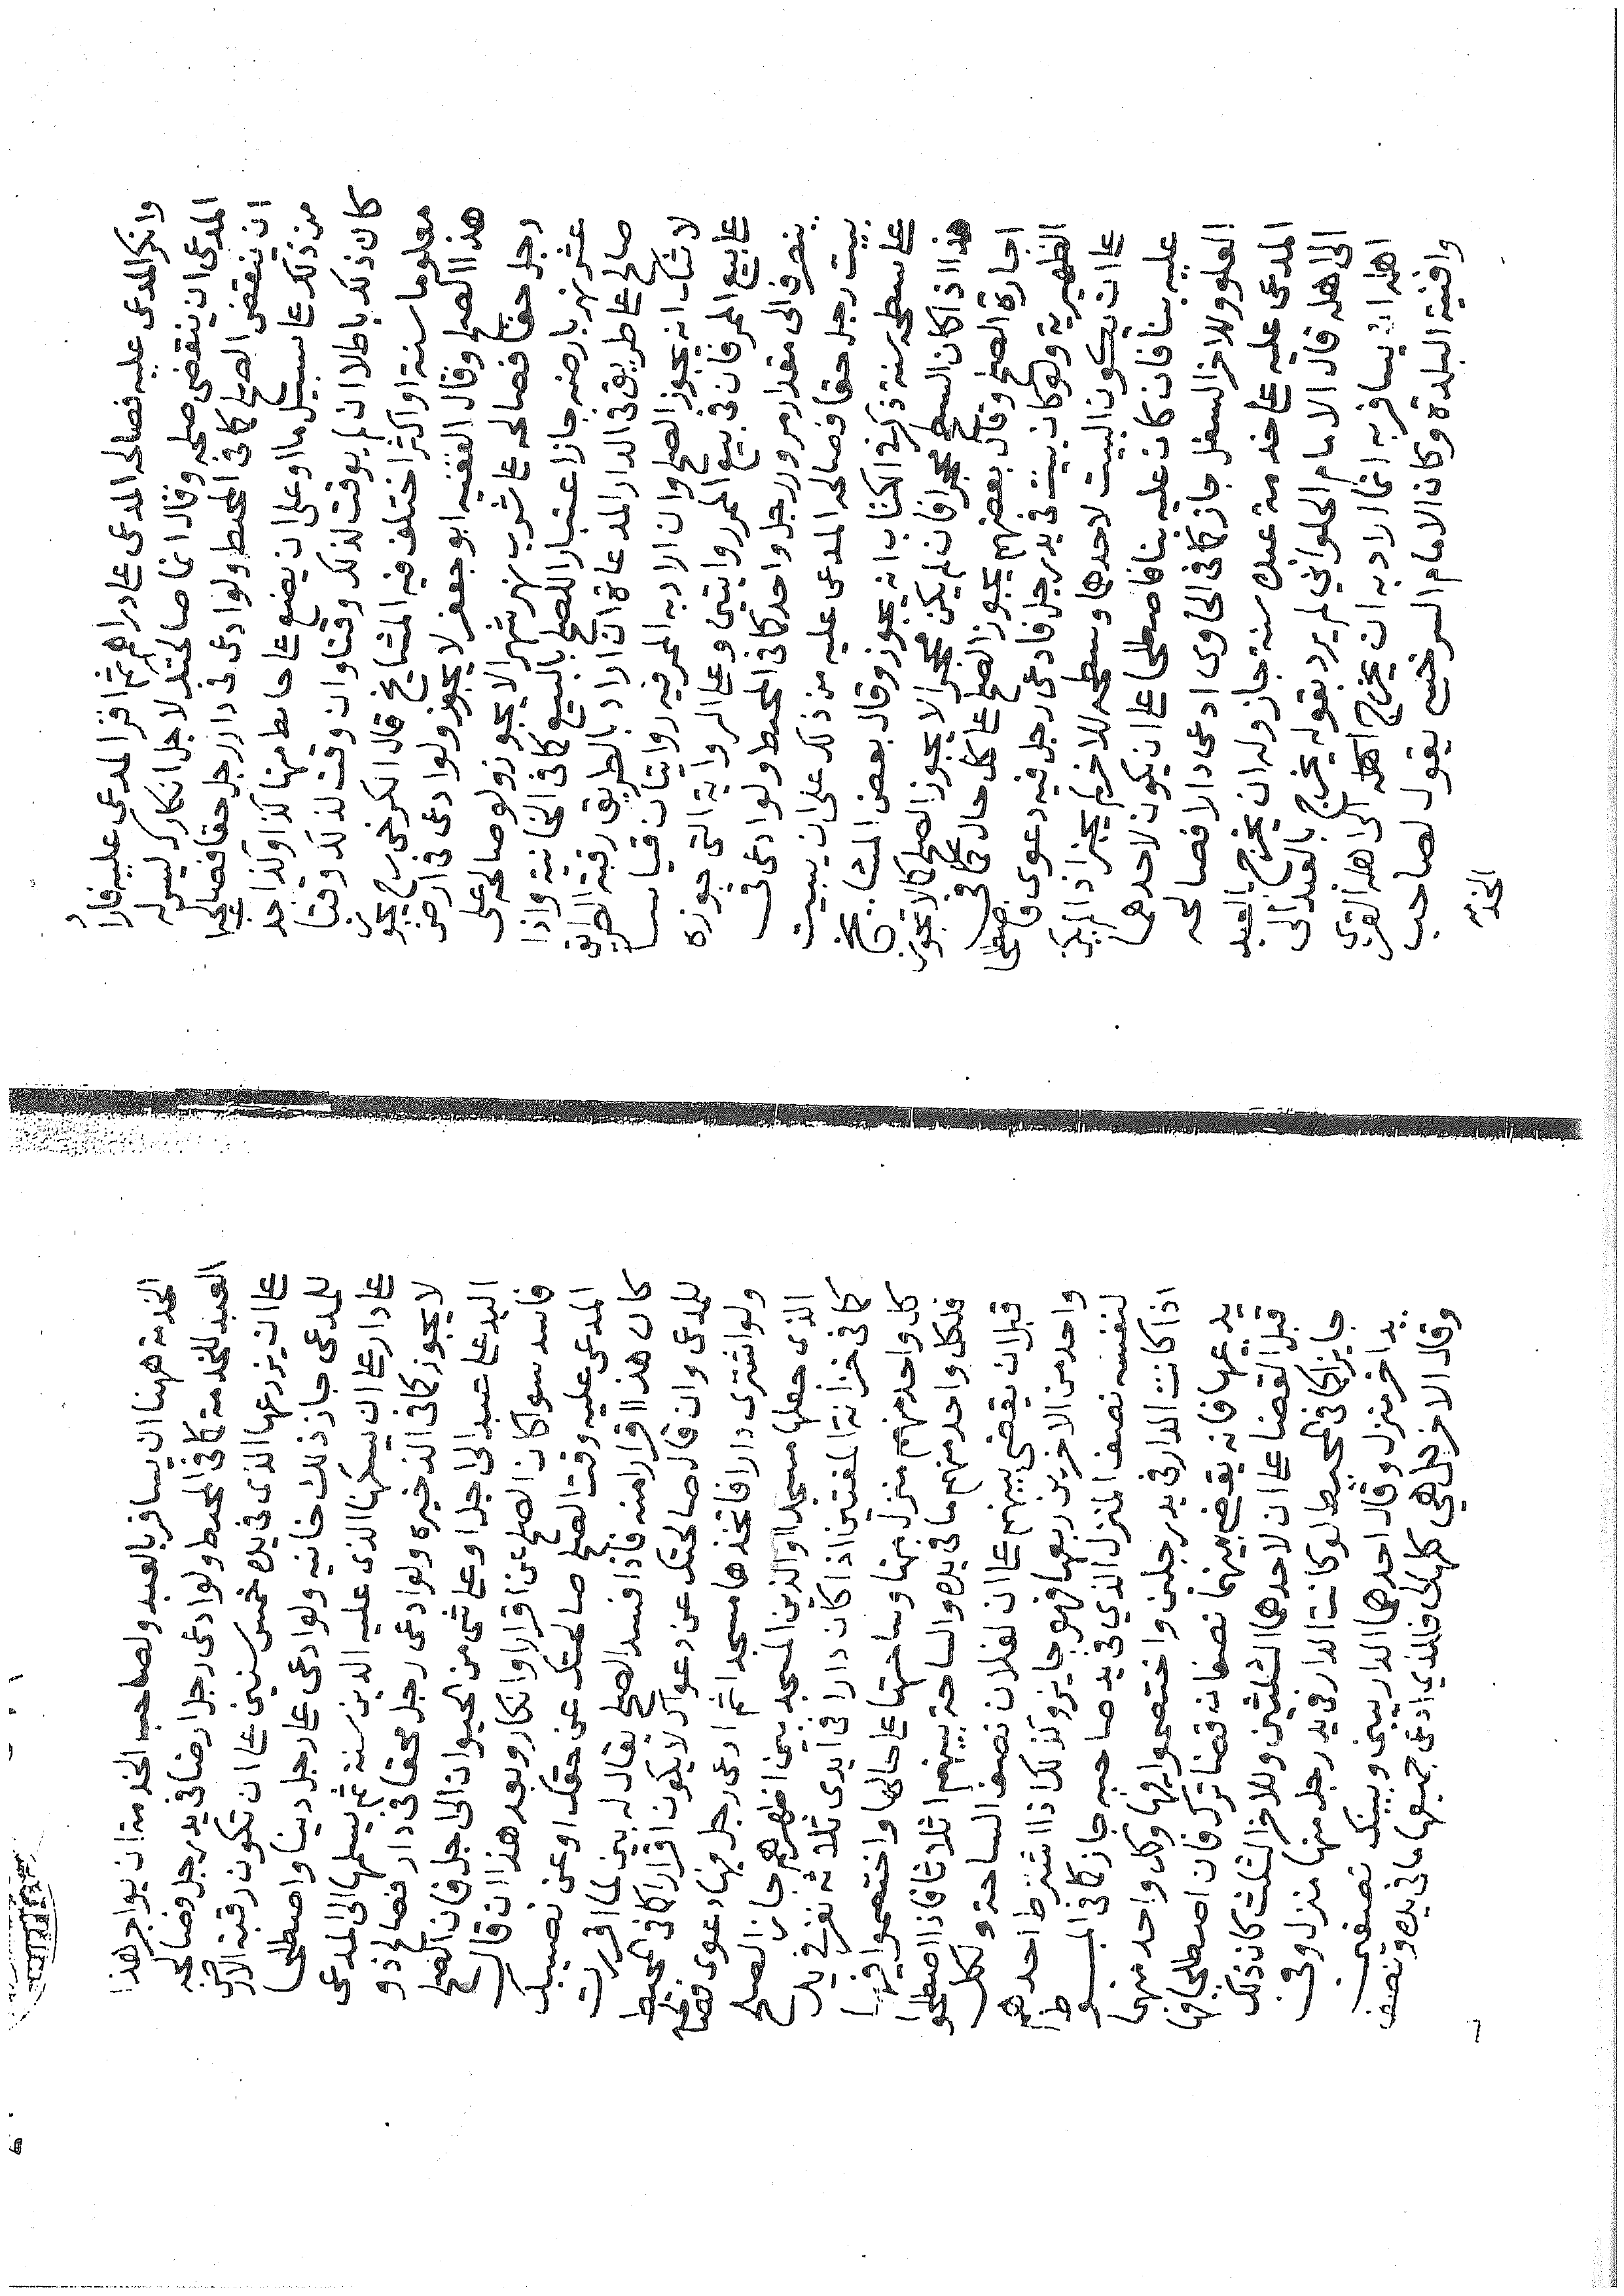 وانكر المدعى عليه فصالحه المدعى على دراهم ثم اقر المدعى عليه فاراد
المدعى ان ينقضى صلحه وقال انما صالحتك لاجل انكارك ليس له
ان ينقضى الصلح كما فى المحيط ولو ادعى فى دار رجل حقا فصالحه
من ذلك على سيل ما او على ان يضع على حايط منها كذا وكذا جذ
كان ذلك باطلا ان لم يوقت لذلك وقتا وان وقت لذلك وقتا
معلوما سنة او اكثر اختلف فيه المشايخ قال الكرخى رح يجوز
هذا الصلح وقال الفقيه ابو جعفر لا يجوز ولو ادعى فى ارض
رجل حقا فصالحه على شرب نهر شهرا لا يجوز ولو صالحه على
عشر نهر بارضه جاز اعتبارا للصلح بالبيع كما فى الخانية واذا
صالح على طريق فى الدار المدعاة ان اراد بالطريق رقبة الطريق
لا شك انه يجوز الصلح وان اراد به الممر فيه روايتان قياسا
على بيع الممر فان فى بيع الممر روايتين وعلى الرواية التى جوزه
ينصرف الى مقدار مرور رجل واحد كما فى المحيط ولو ادعى فى
بيت رجل حقا وصالحه المدعى عليه من ذلك على ان يبيت
على سطحه سنة ذكر فى الكتاب انه يجوز وقال بعض المشايخ
هذا اذا كان السطح محجرا فان لم يكن محجرا لا يجوز الصلح كما لا تجوز
اجارة السطح وقال بعضهم يجوز الصلح على كل حال كما فى
الظهيرية ولو كان بيت فى يد رجل فادعى رجل فيه دعوى فاصطلحا
على ان يكون البيت لاحدهما وسطحه للاخر لم يجز اذا لم يكن
عليه بنا فان كان عليه بنا فاصطلحا على ان يكون لاحدهما
العلو وللاخر السفل جاز كما فى الحاوى ادعى دارا فصالحه
المدعى عليه على خدمة عبده سنة جاز وله ان يخرج بالعبد
الى اهله قال الامام الحلوانى لم يرد بقوله يخرج بالعبد الى
اهله ان يسافر به انما اراد به ان يخرج اهله الى اهله القرى
وافنية البلدة وكان الامام السرخسى يقول لصاحب
الخد
الخدمة ههنا ان يسافر بالعبد ولصاحب الخدمة ان يواجر هذا
العبد للخدمة كما فى المحيط ولو ادعى رجل ارضا فى يد رجل وصالحه
على ان يزرعها الذى فى يده خمس سنين على ان تكون رقبة الارض
للمدعى جاز ذلك خانيه ولو ادعى على رجل دينا واصطلحا
على دار على ان يسكنها الذى عليه الدين سنة ثم يسلمها الى المدعى
لا يجوز كما فى الذخيره ولو ادعى رجل محقا فى دار فصالح ذو
اليد على عبد الى اجل او على شى من الحيوان الى اجل فان الصلح
فاسد سوا كان الصلح عن اقرار او انكار وبعد هذا ان قال
المدعى عليه وقت الصلح صالحتك عن حقك او عن نصيبك
كان هذا اقرارا منه فاذا فسد الصلح يقال له بين لما اقررت
للمدعى وان قال صالحتك عن دعواك لا يكون اقرارا كما فى المحيط
ولو اشترى دارا فاتخذها مسجدا ثم ادعى رجل فيها دعوى فصالح
الذى جعلها مسجدا او الذين المسجد بين اظهرهم جاز الصلح
كما فى خزانة المفتين اذا كان دارا فى ايدى ثلاثة نفر فى يد
كل واحد منهم منزل منها وساحتها على حالها واختصموا فيها
فلكل واحد منهم ما فى يده والساحة بينهم اثلاثا فاذا اصطلحوا
قبل ان يقضى بينهم على ان لفلان نصف الساحة ولكل
واحد من الاخرين ربعها فهو جايز وكذلك اذا اشترط احدهم
لنفسه نصف المنزل الذي فى يد صاحبه جاز كما فى المبسوط
اذا كانت الدار فى يد رجلين واختصموا فيها وكل واحد منهما
يدعيها فانه يقضى بينهما نصفان قضا ترك فان اصطلحا فيها
قبل القضا على ان لاحدهما الثلثين وللاخر الثلث كان ذلك
جايزا كما فى المحيط لو كانت الدار فى يد رجل منها منزل وفى
يد اخر منزل وقال احدهما الدار بينى وبينك نصفين
وقال الاخر بل هي كلها لى فللذي ادعى جميعها ما فى يده ونصف